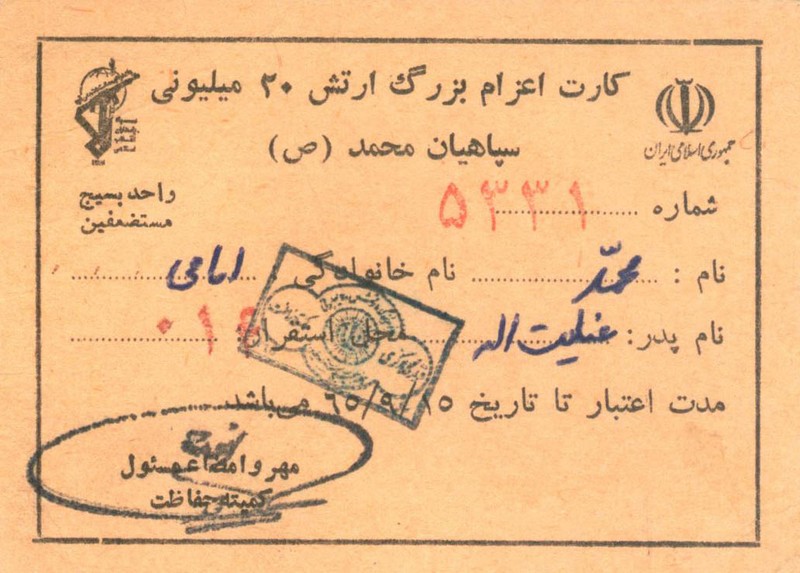 کارت اعزام بزرگ ارتش ۲۰ میلیونی
سپاهیان محمد (ص)
جمهوری اسلامی ایران
واحد بسیج
مستضعفین
شماره ............ ۵۳۳۱
نام : محمّد نام خانوادگی : امامی
نام پدر: عنایت اله محل استقرار: ۰۱۴
مدت اعتبار تا تاریخ ۶۵/۹/۱۵ می‌باشد.
مهر و امضاء مسئول
کمیته حفاظت